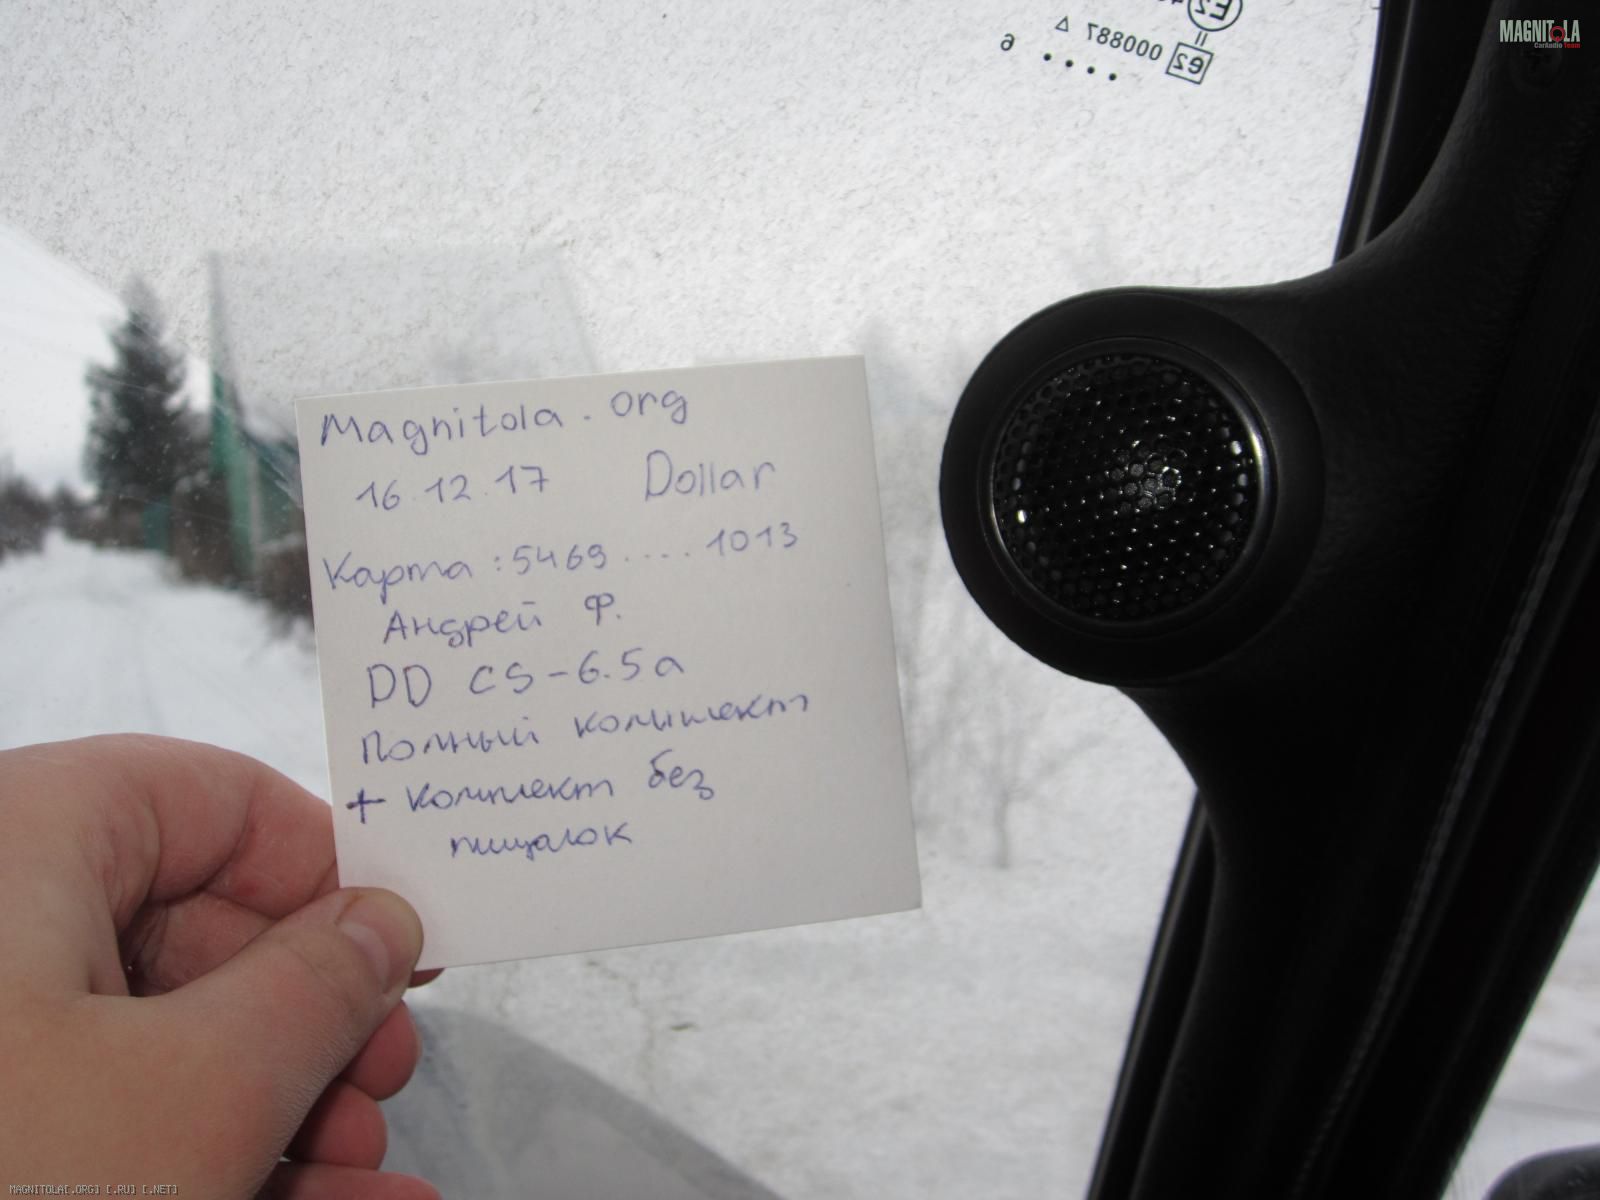 MAGNITOLA
CarAudio Team
E2
000887
e2
6 . . . .
Magnitola.org
16.12.17 Dollar
Карта : 5469 .... 1013
Андрей Ф.
DD CS-6.5a
Полный комплект
+ комплект без
пищалок
MAGNITOLA[.ORG] [.RU] [.NET]